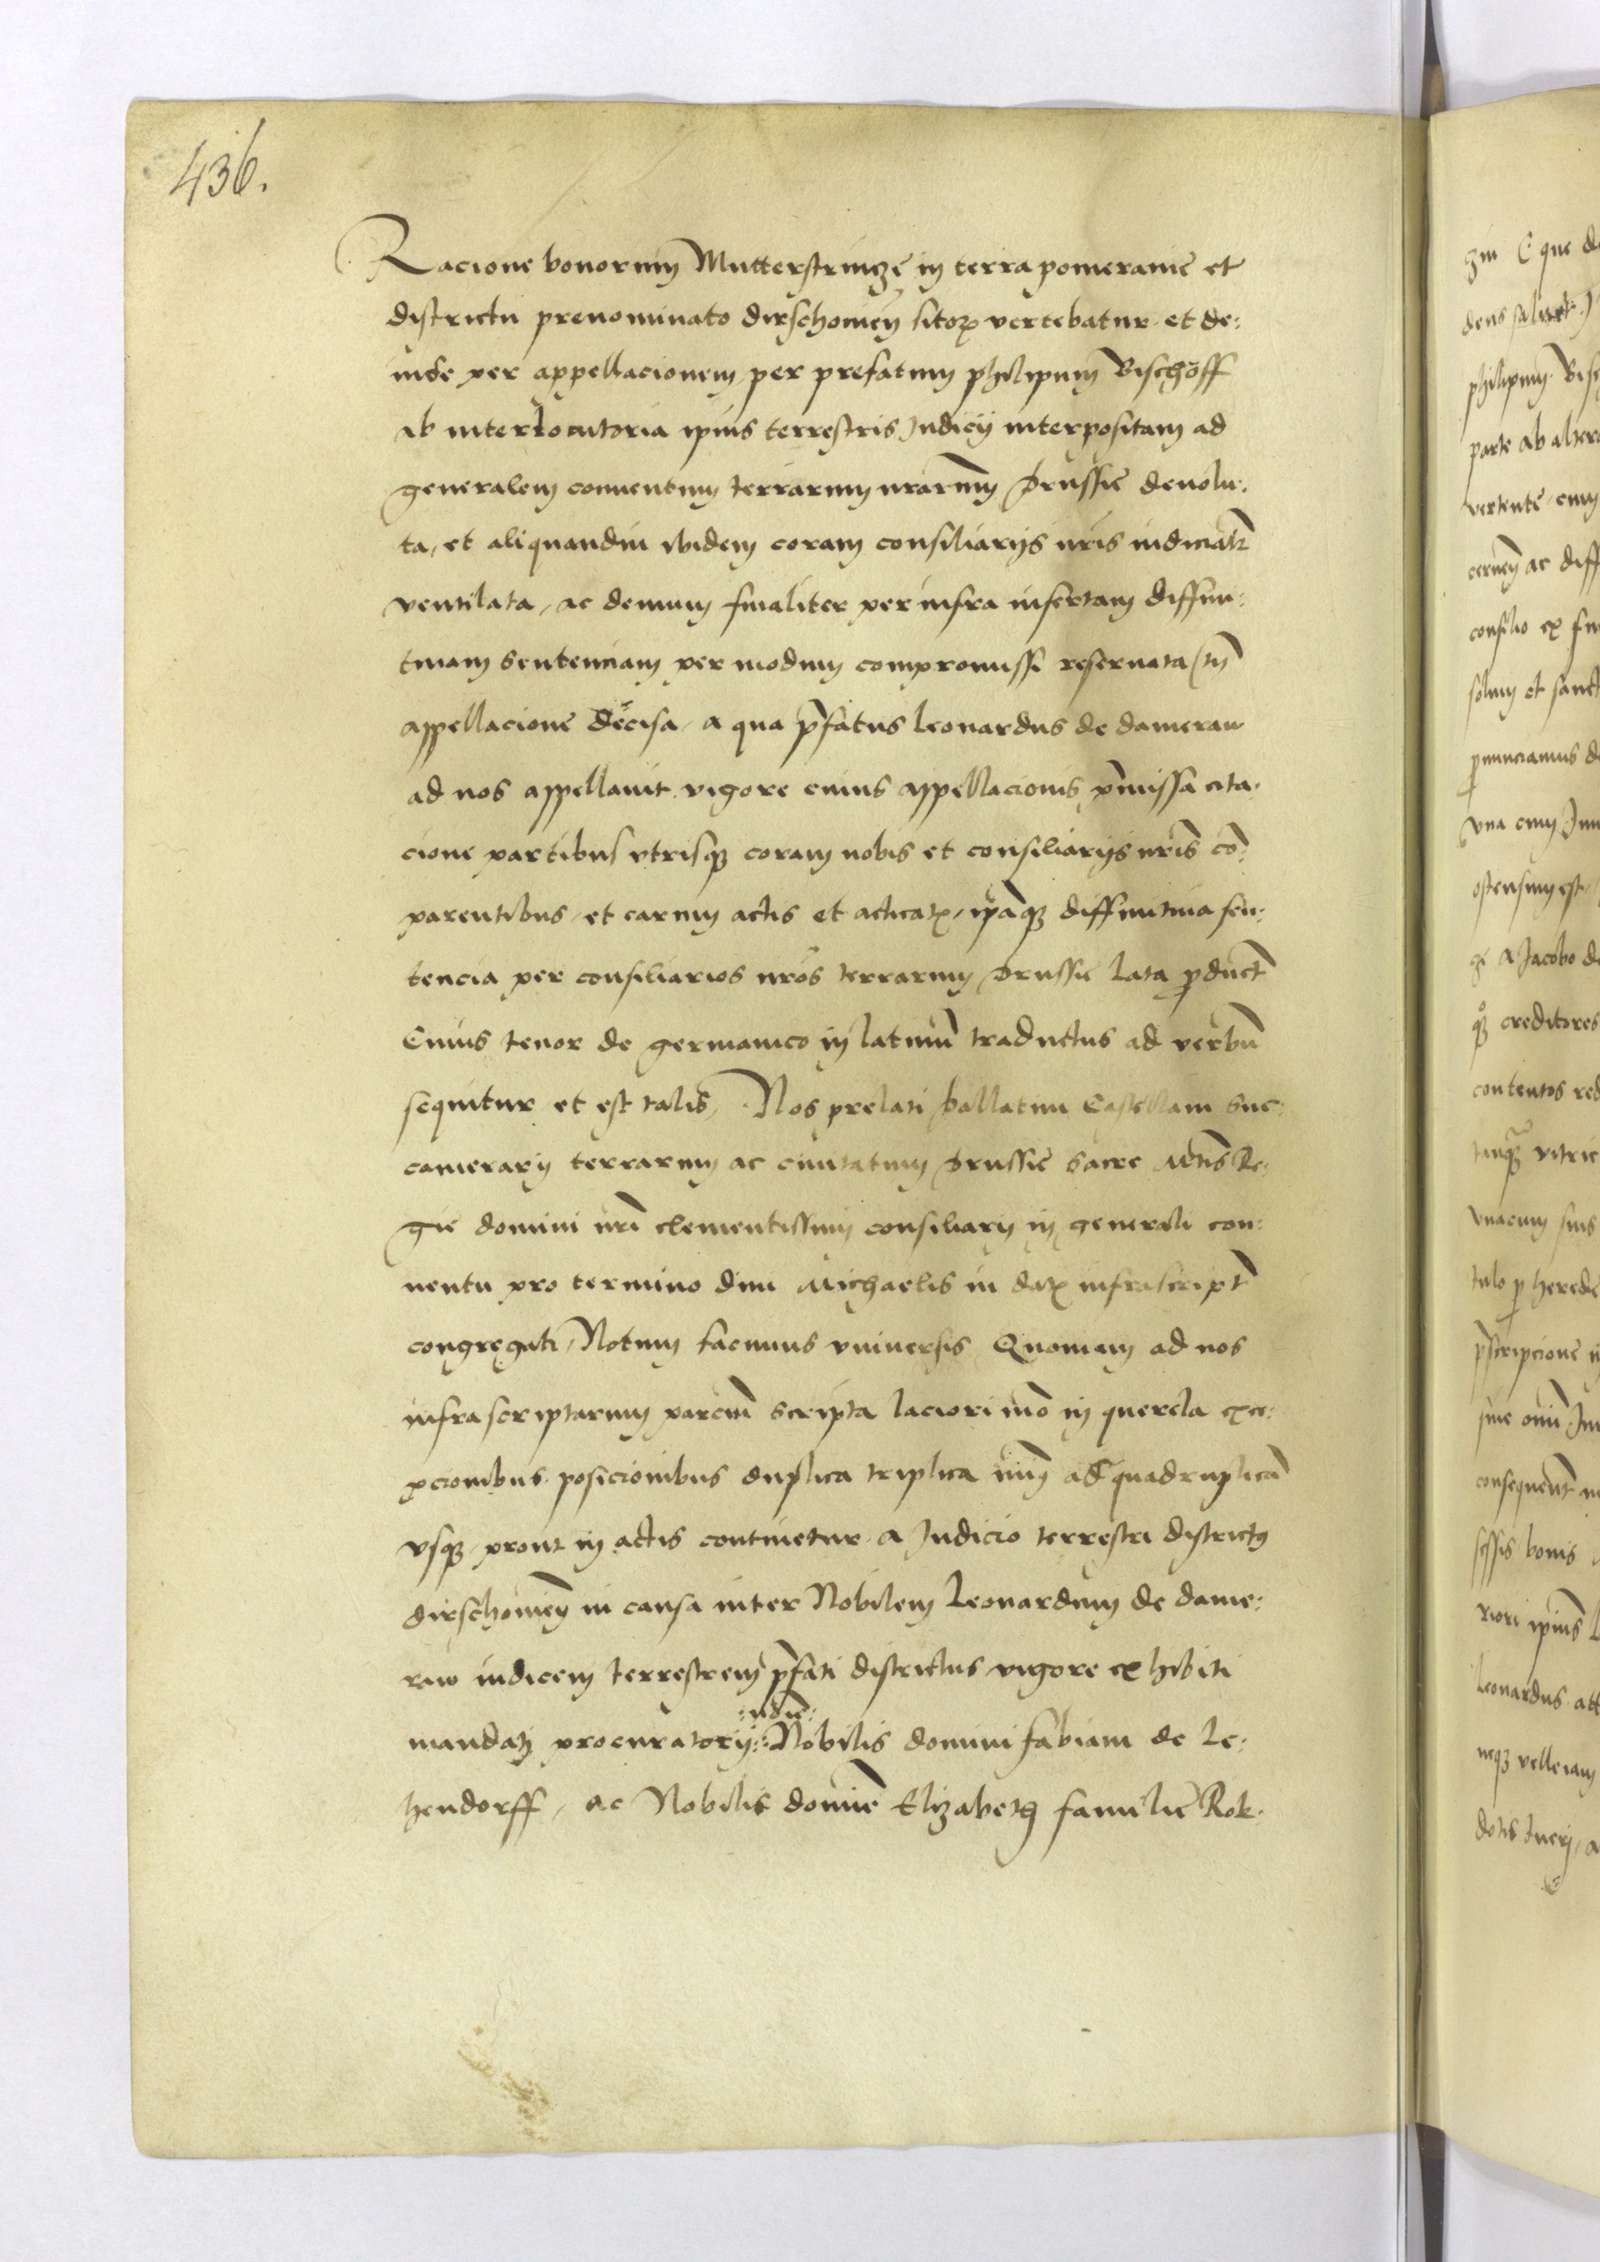 436.
Racione bonorum Mutterstrincze in terra pomeranie et
districtu prenominato dirschouien̄ sitoꝝ vertebatur et de:
inde per appellacionem per prefatum philipum Bischoff
ab interlocutoria ipius terrestris Judicij interpositam ad
generalem conuentum terrarum nrarum prussie deuolu:
ta, et aliquandiu ibidem coram consiliarijs nris iudicialr̄
ventilata, ac demum finaliter per infra insertam diffini:
tiuam sentenciam per modum compromissi reseruata tn̄
appellacione decisa, a qua p̄fatus Leonardus de dameraw
ad nos appellauit vigore cuius appellacionis p̄missa cita:
cione partibus vtrisqꝫ coram nobis et consiliarijs nr̄is co:
parentibus, et earum actis et acticatꝭ, ip̄aqꝫ diffinitiua sen:
tencia per consiliarios nr̄os terrarum prussie lata ꝓduct̄
Cuius tenor de germanico in latinū traductus ad verbū
sequitur et est talis, Nos prelati pallatini Castellani Suc:
camerarij terrarum ac ciuitatum prussie Sacre Mtis Re:
gie domini nr̄i clementissimi consiliarij in generali con:
uentu pro termino diui Michaelis in datꝭ infrascript̄
congregati, Notum facimus vniuersis Quomam ad nos
infrascriptarum parcīū scripta laciori mō in querela exce:
pcionibus posicionibus duplica triplica im̄o ad quadruplicā
vsqꝫ prout in actis continetur a Judicio terrestri districtꝰ
dirschouien̄ in causa inter Nobilem Leonardum de dame:
raw iudicem terrestrem p̄fati districtus vigore exhibiti
mandati procuratorij :ndie: Nobilis domini fabiani de Le:
hendorff, ac Nobilis domine Elizabeth familie Rok:
zin E que de
dens
philipum Bis
parte ab altera
vertente, cum
cernen̄ ac diff
consilio ex
solum et sanct
ꝓnunciamus de
vna cum
ostensum est
a Jacobo de
creditores
contentos red
vitric
vnacum suis
tulo ꝓ herede
p̄scripcione
sine
consequent̄
sessis bonis
riori ipius L
Leonardus att
neqꝫ
dotis